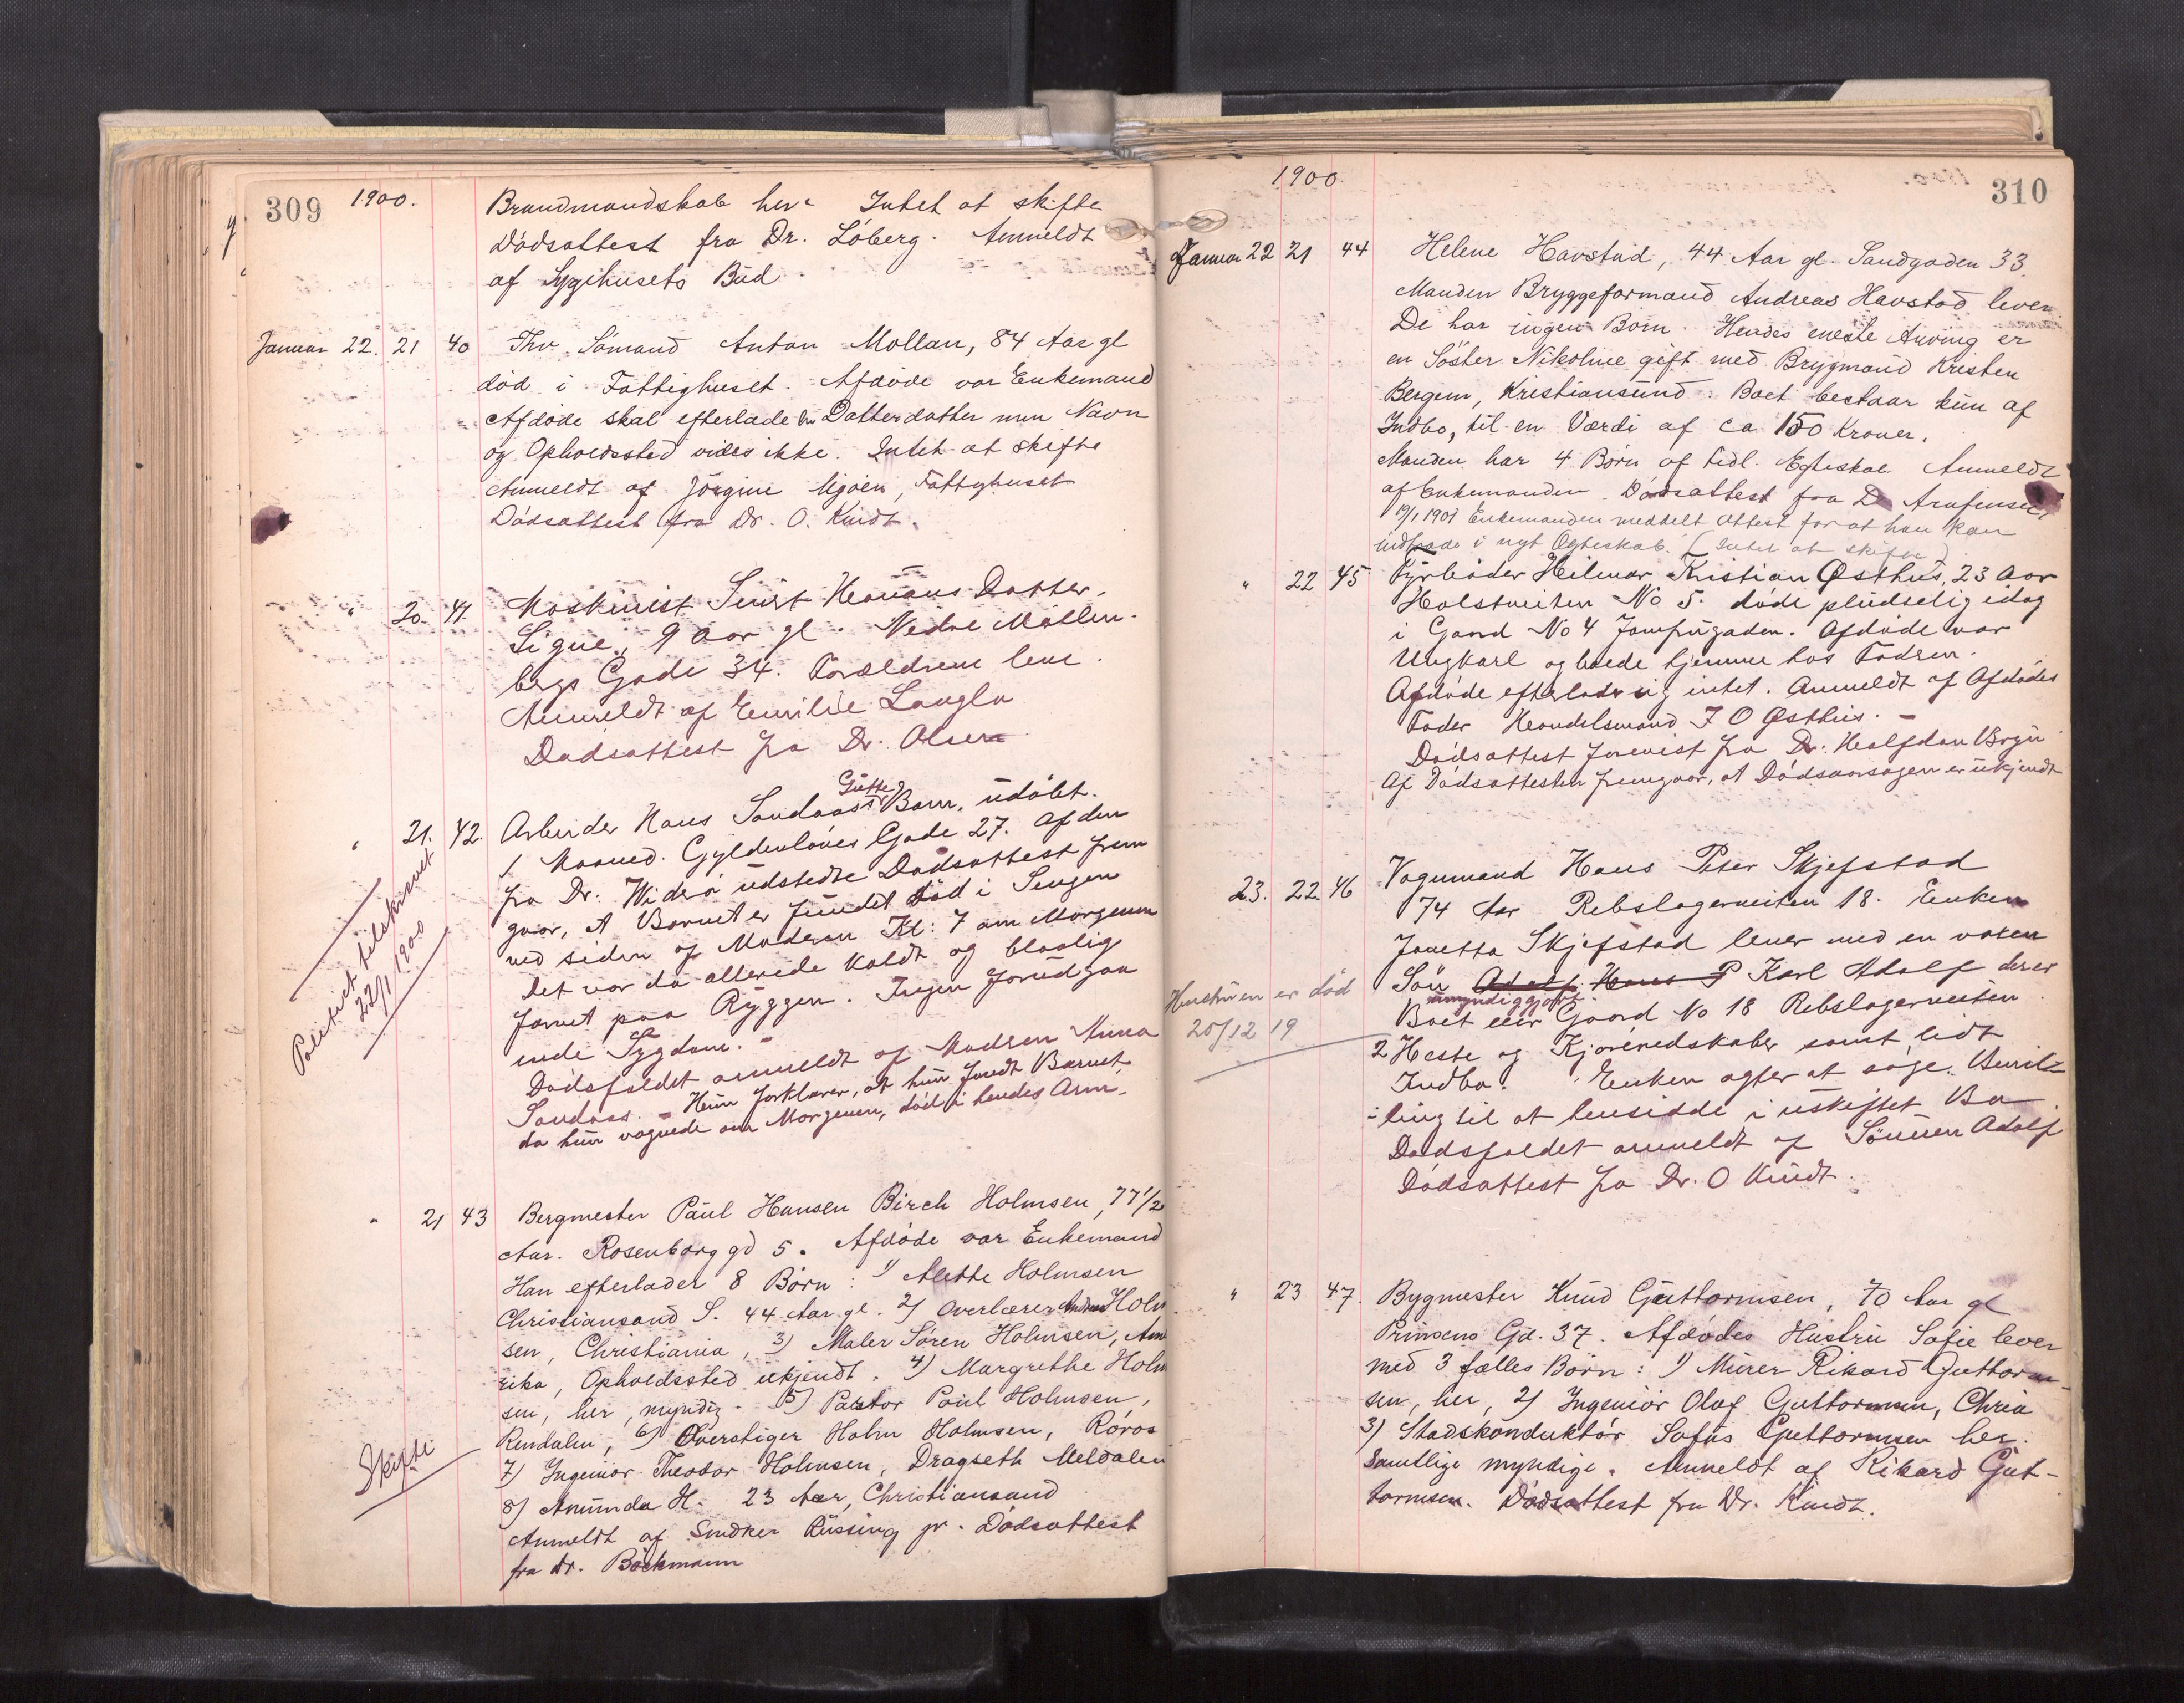 309 1900.
Brandmandskab her. Intet at skifte
Dödsattest fra Dr. Löberg. Anmeldt
af Sygehusets Bud.
Januar 22. 21 40 Fhv. Sömand Anton Mollan, 84 Aar gl
död i Fattighuset. Afdöde var Enkemand
Afdöde skal efterlade en Datterdatter men Navn
og Opholdssted vides ikke. Intet at skifte
Anmeldt af Jörgine Mjoen, Fattighuset
Dödsattest fra Dr. O. Kindt.
" 20. 41. Maskinist Hanans Datter,
Signe, 9 Aar gl. Nedre Möllen-
bergs Gade 34. Forældrene leve.
Anmeldt af Emilie Langlo
Dödsattest fra Dr. Olsen
" 21. 42. Arbeider Hans Sandaas's Gutte Barn, udöbt.
1 Maaned. Gyldenlöves Gade 27. Af den
fra Dr. Widerö udstedte Dödsattest frem
gaar, at Barnet er fundet död i Sengen
ved siden af Moderen Kl: 7 om Morgenen
Det var da allerede koldt og blaalig
farvet paa Ryggen. Ingen forudgaa
ende Sygdom. -
Dödsfaldet anmeldt af Modren Anna
Sandaas. - Hun forklarer, at hun fandt Barnet
da hun vaagnede om Morgenen, död i hendes Arm.
Politiet tilskrevet
22/1 1900
" 21 43 Bergmester Paul Hansen Birch Holmsen, 77 1/2
Aar. Rosenborg gd 5. Afdöde var Enkemand
Han efterlader 8 Börn: 1) Alette Holmsen
Christiansand S. 44 Aar gl. 2) Overlærer Andreas Holm
sen, Christiania, 3) Maler Sören Holmsen, Ame
rika, Opholdssted ukjendt. 4) Margrethe Holm
sen, her, myndig. 5) Pastor Poul Holmsen,
Rendalen, 6) Overstiger Holm Holmsen, Röros
7) Ingeniör Theodor Holmsen, Dragseth Meldalen
8) Amunda H. 23 Aar, Christiansand
Anmeldt af Snedker Rüssing jr. Dödsattest
fra Dr. Böckmann
Skifte
1900. 310
Januar 22 21 44 Helene Havstad, 44 Aar gl. Sandgaden 33.
Manden Bryggeformand Andreas Havstad lever.
De har ingen Börn. Hendes eneste Arving er
en Söster Nikoline gift med Brygmand Kristen
Bergem, Kristiansund. Boet bestaar kun af
Indbo, til en Værdi af ca 150 Kroner.
Manden har 4 Börn af tidl. Egteskab Anmeldt
af Enkemanden. Dödsattest fra Dr
19/1 1901 Enkemanden meddelt Attest for at han kan
indtræde i nyt Ægteskab. (Intet at skifte)
" 22 45 Fyrböder Hilmar Kristian Østhus, 23 Aar
Holstveiten No 5. döde pludselig idag
i Gaard No 4 Jomfrugaden. Afdöde var
Ungkarl og boede hjemme hos Fadren.
Afdöde efterlader sig intet. Anmeldt af Afdödes
Fader Handelsmand J O Østhus. -
Dödsattest forevist fra Dr. Halfdan Bryn
Af Dödsattesten fremgaar, at Dödsaarsagen er ukjendt
23. 22 46 Vognmand Hans Peter Skjefstad
74 Aar Rebslagerveiten 18. Enken
Janetta Skjefstad lever med en voksen
Sön Adolf Hans P Karl Adolf der er
umyndiggjort.
Boet eier Gaard No 18 Rebslagerveiten
2 Heste og Kjöreredskaber samt lidt
Indbo. Enken agter at söge Bevil-
ling til at hensidde i uskiftet Bo
Dödsfaldet anmeldt af Sönnen Adolf
Dödsattest fra Dr. O Kindt.
Hustruen er död
20/12 19
" 23 47. Bygmester Knud Guttormsen, 70 Aar gl
Prinsens Gd. 37. Afdödes Hustru Sofie lever
med 3 fælles Börn: 1) Murer Rikard Guttorm-
sen, her, 2) Ingeniör Olaf Guttormsen, Chria
3) Stadskonduktör Sofus Guttormsen her.
Samtlige myndige. Anmeldt af Rikard Gut-
tormsen. Dödsattest fra Dr. Kindt.